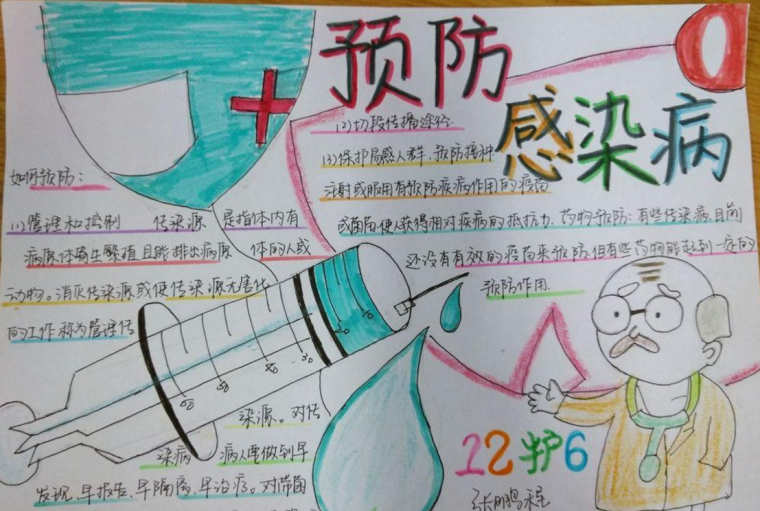 预防
感染病
如何预防:
(1)管理和控制 传染源 是指体内有
病原体寄生繁殖且能排出病原 体的人或
动物。消灭传染源或使传染源无害化
的工作称为管理传
染源。对传
染病 病人要做到早
发现、早报告、早隔离、早治疗。对带菌
(2)切段传播途径.
(3)保护易感人群、预防接种
注射或服用有预防疾病作用的疫苗
或菌苗,使人获得相对疾病的抵抗力,药物预防:有些传染病,目前
还没有有效的疫苗来预防,但有些药物能起到一定的
预防作用.
12护6
张鹏程